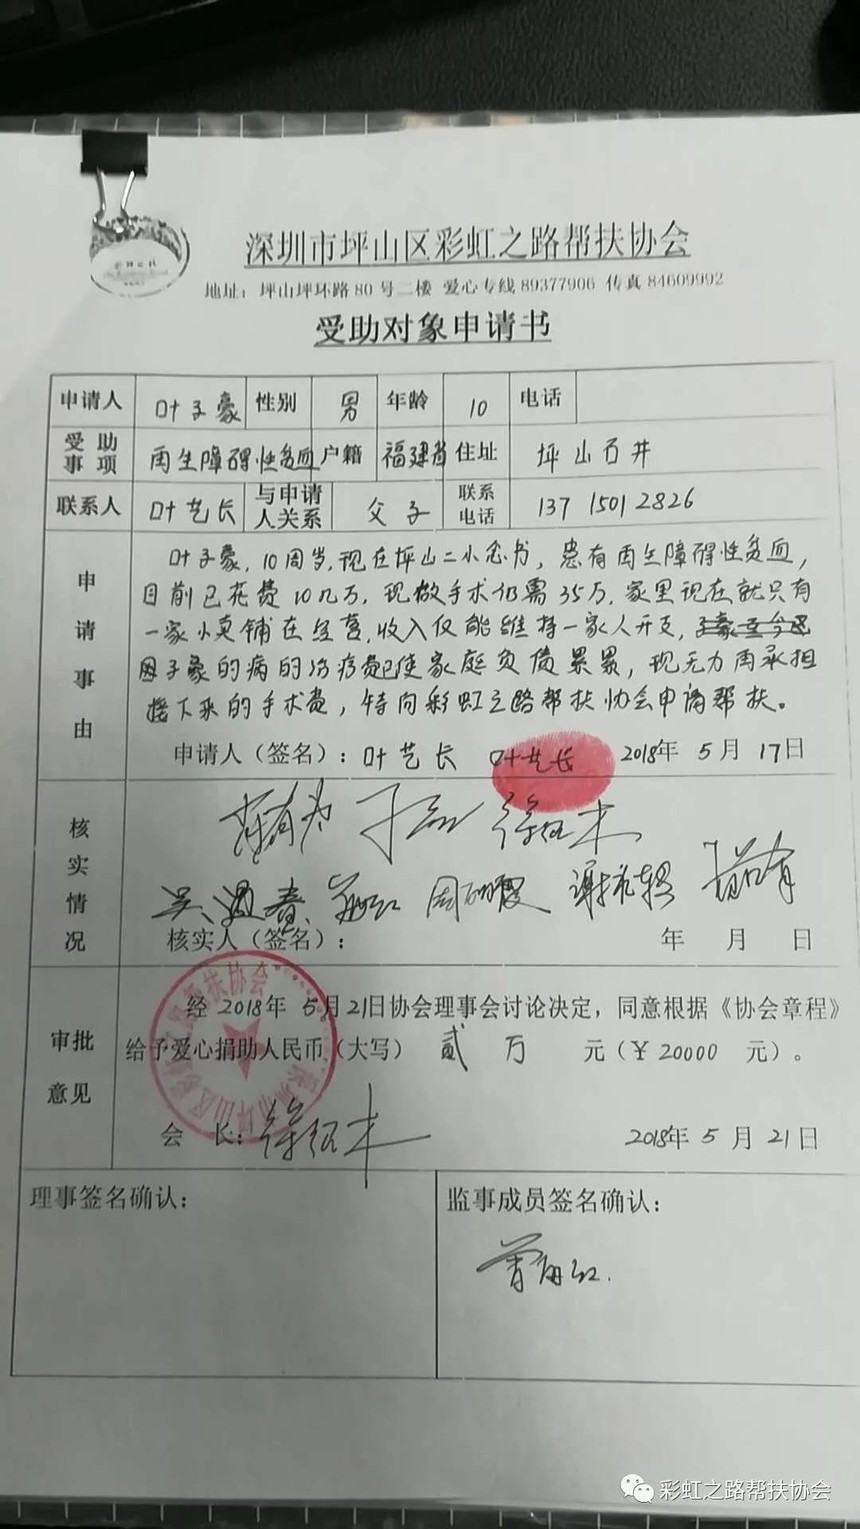 深圳市坪山区彩虹之路帮扶协会
地址：坪山坪环路80号二楼 爱心专线89377906 传真84609992
受助对象申请书
申请人 叶子豪 性别 男 年龄 10 电话
受助事项 再生障碍性贫血 户籍 福建省 住址 坪山石井
联系人 叶艺长 与申请人关系 父子 联系电话 137 1501 2826
申请事由
叶子豪，10周岁，现在坪山二小念书，患有再生障碍性贫血，
目前已花费10几万，现做手术仍需35万，家里现在就只有
一家小卖铺在经营，收入仅能维持一家人开支，
因子豪的病的治疗费已使家庭负债累累，现无力再承担
接下来的手术费，特向彩虹之路帮扶协会申请帮扶。
申请人（签名）：叶艺长 叶艺长 2018年 5月 17日
核实情况
核实人（签名）： 年 月 日
审批意见
经 2018年 5月21日协会理事会讨论决定，同意根据《协会章程》
给予爱心捐助人民币（大写） 贰 万 元（￥20000 元）。
会 长： 2018年 5月 21日
理事签名确认：
监事成员签名确认：
彩虹之路帮扶协会